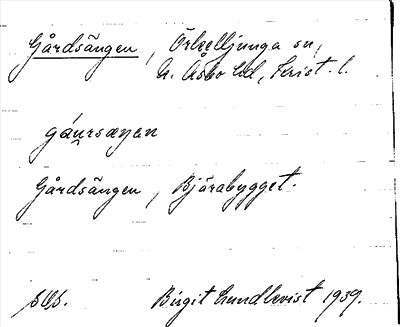 Gårdsängen, Örkelljunga sn,
N. Åsbo hd, Krist. l.
gáu̯rsæŋən
Gårdsängen, Bjärabygget.
Birgit Lundkvist 1939.